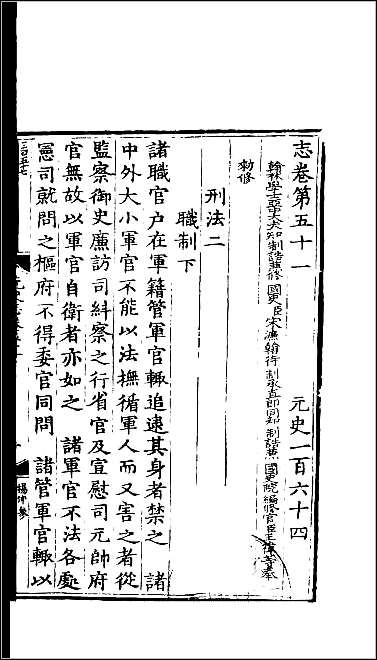 志卷第五十一　元史一百六十四
翰林學士亞中大夫知制誥兼修國史臣宋濂翰林待制承直郎同知制誥兼國史院編修官臣王禕等奉
勑修
刑法二
職制下
諸職官户在軍籍管軍官輒追逮其身者禁之　諸
中外大小軍官不能以法撫循軍人而又害之者從
監察御史廉訪司糾察之行省官及宣慰司元帥府
官無故以軍官自衛者亦如之　諸軍官不法各處
憲司就問之樞府不得委官同問　諸管軍官輒以